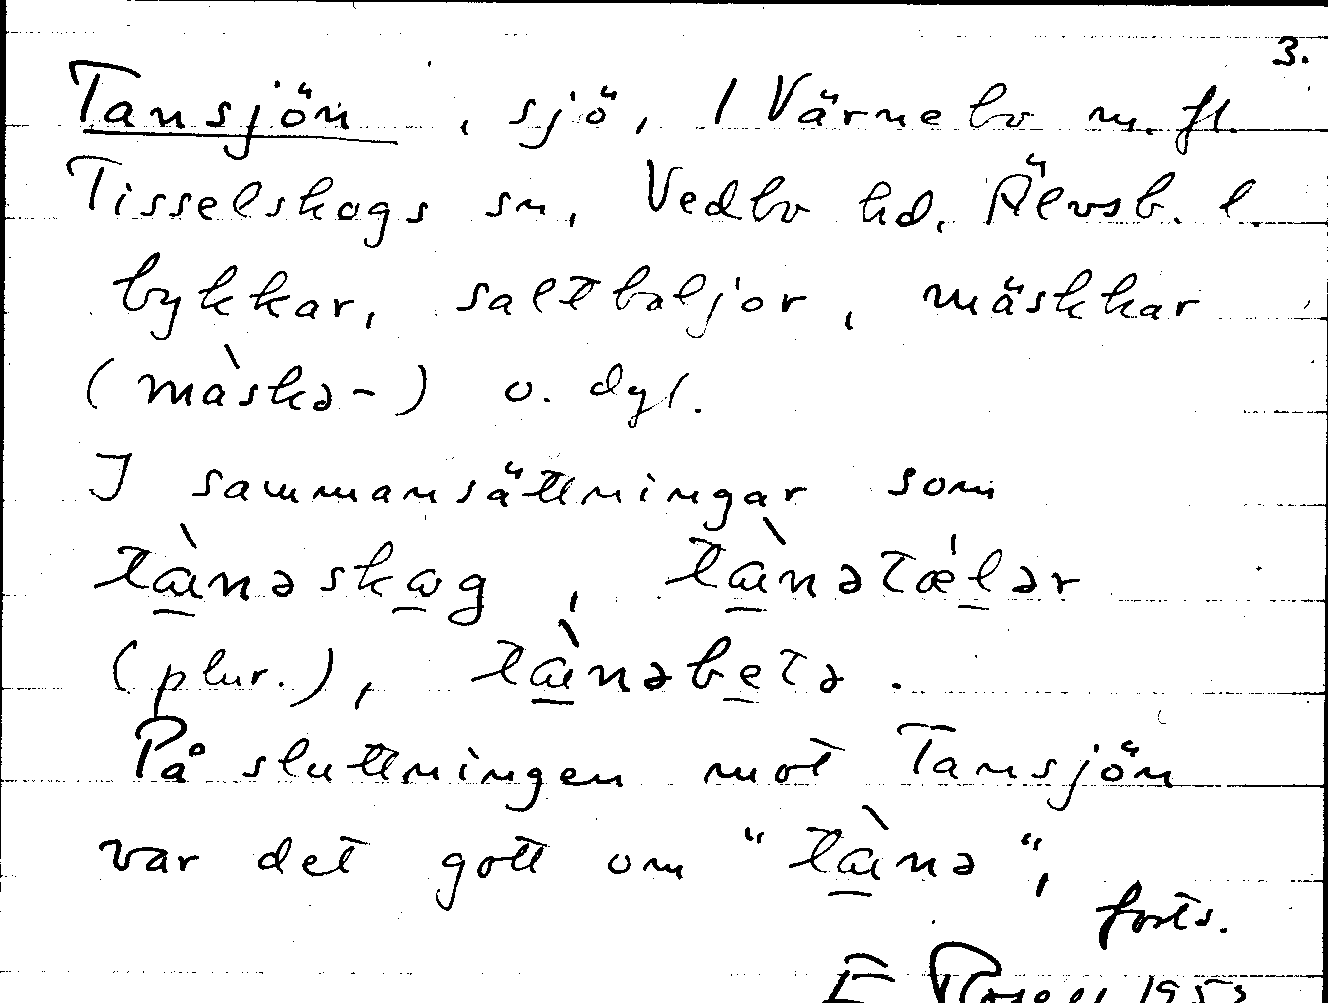 3.
Tansjön, sjö, / Värnebo m. fl.
Tisselskogs sn, Vedbo hd, Älvsb. l.
bykkar, saltbaljor, mäskkar
(màskə-) o. dyl.
I sammansättningar som
tὰ̱nəska̱g, tὰ̱nətǽḻər
(plur.), tὰ̱nəbe̱tə.
På sluttningen mot Tansjön
var det gott om "tὰ̱nə",
forts.
E 1953